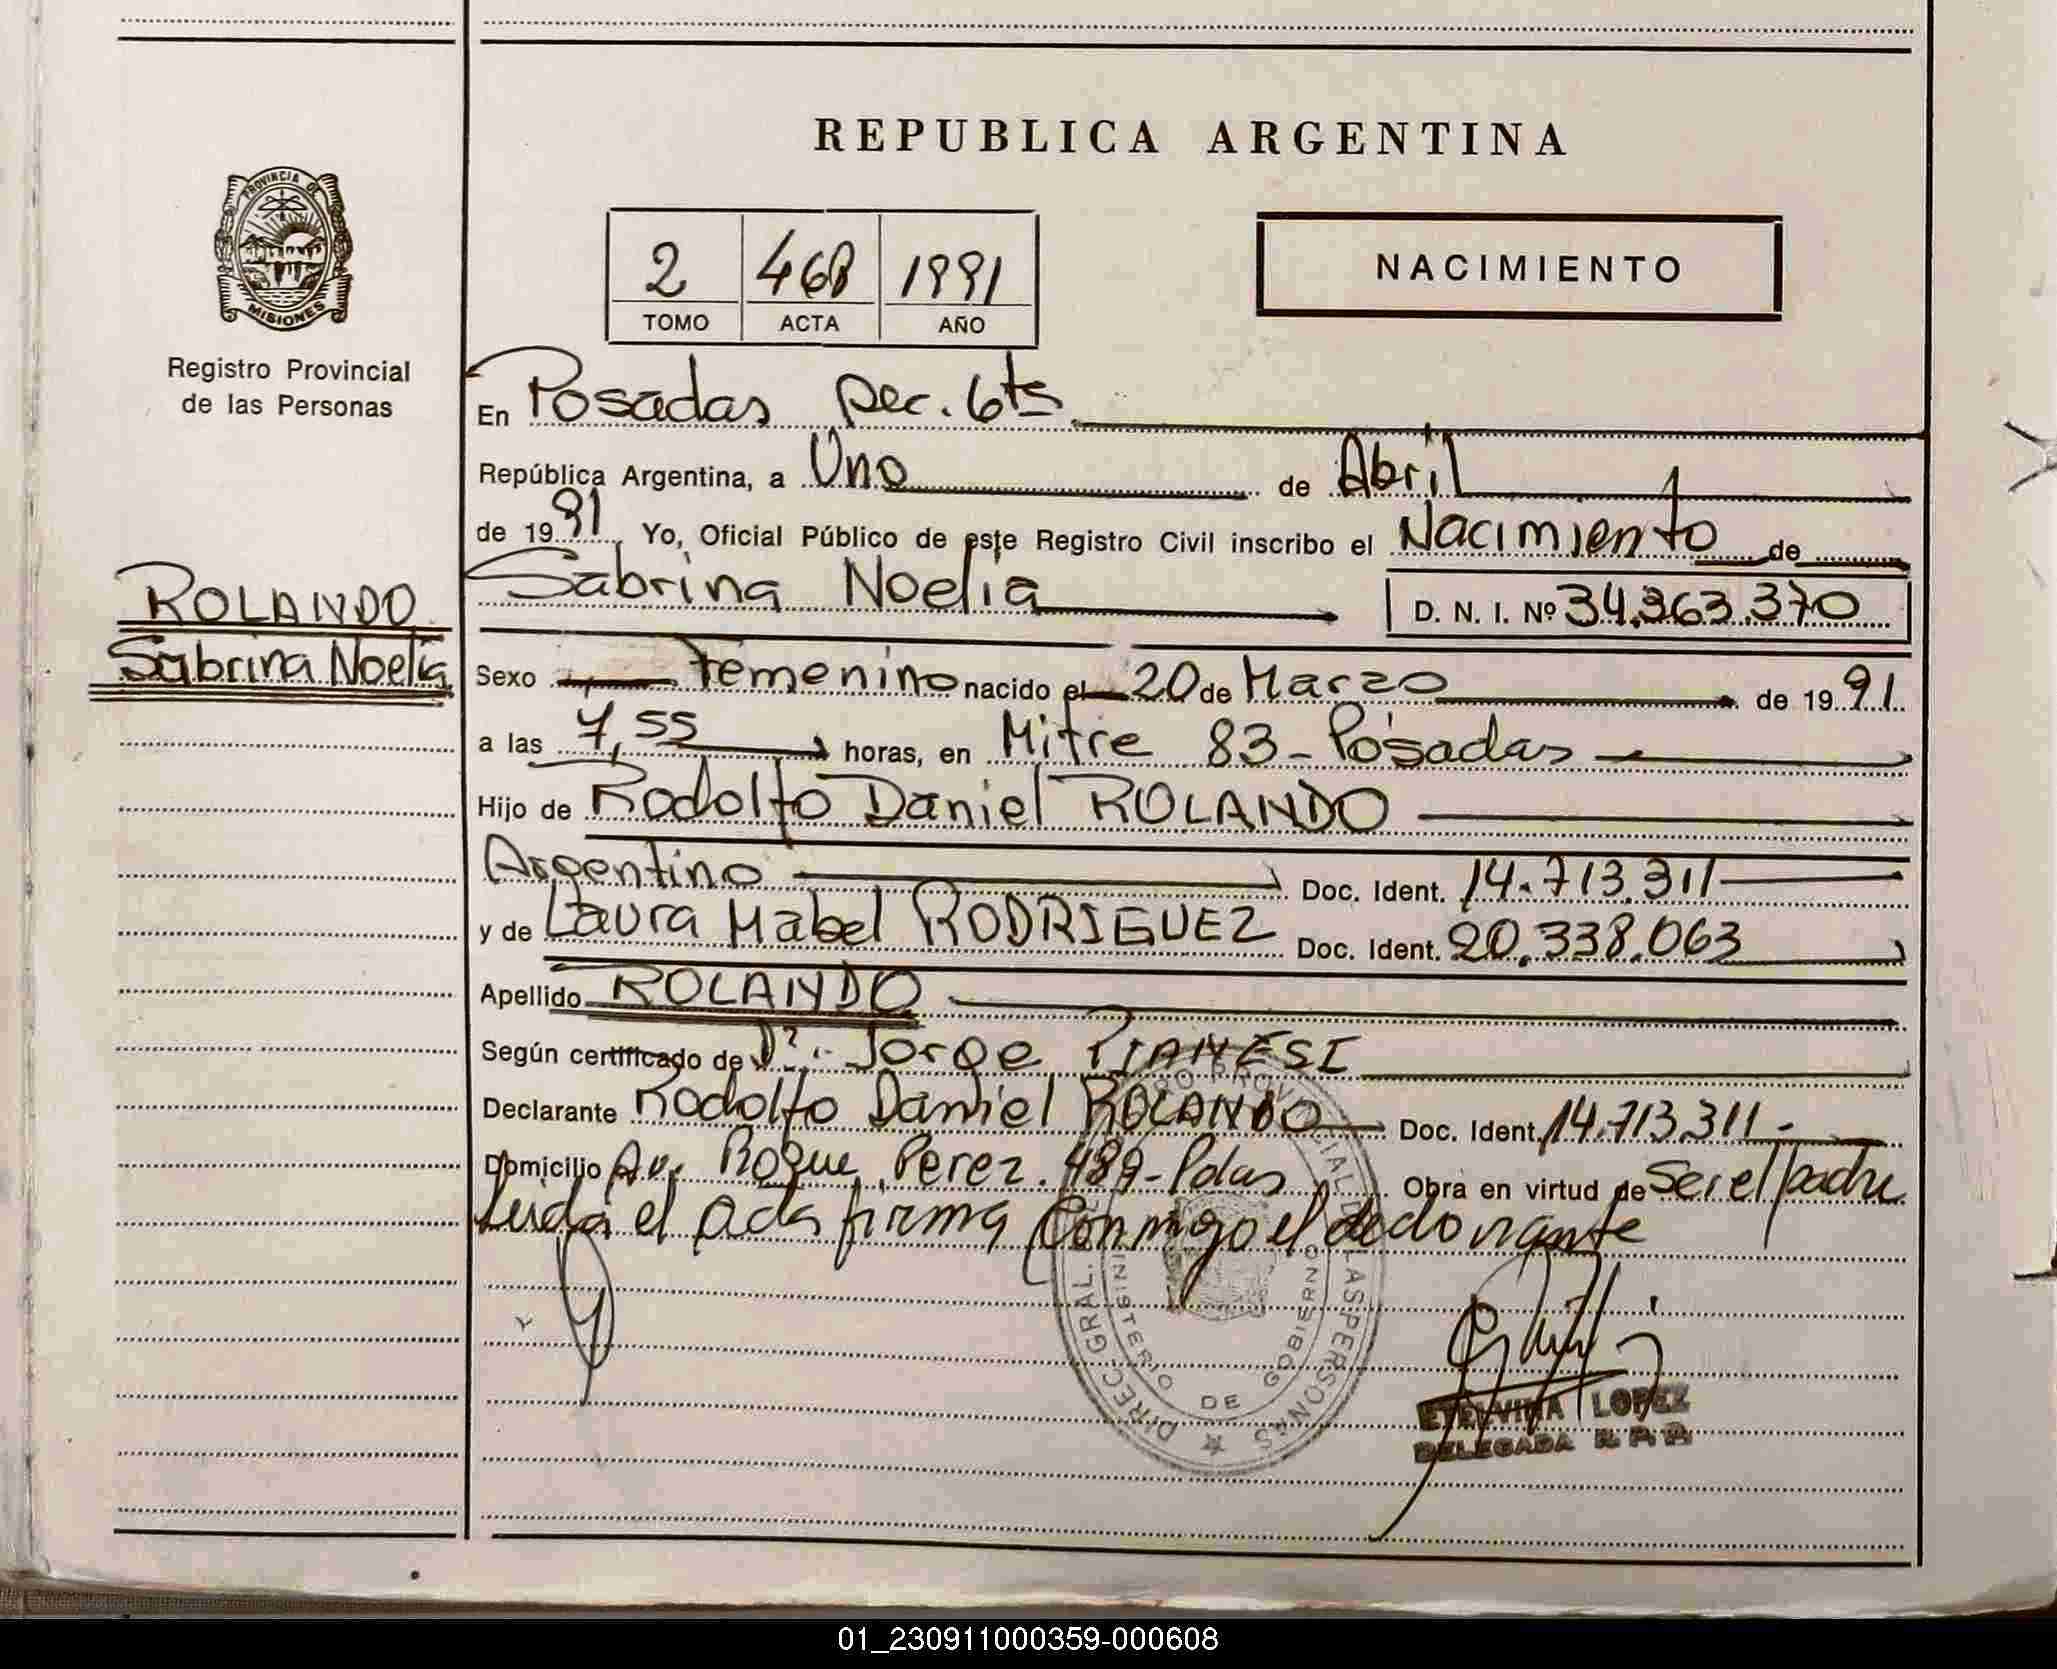 REPUBLICA ARGENTINA
PROVINCIA DE
MISIONES
Registro Provincial
de las Personas
2 468 1991
TOMO ACTA AÑO
NACIMIENTO
En Posadas sec. 6ts
República Argentina, a Uno de Abril
de 1991 Yo, Oficial Público de este Registro Civil inscribo el Nacimiento de
Sabrina Noelia D. N. I. Nº 34.363.370
ROLANDO
Sabrina Noelia
Sexo Femenino nacido el 20 de Marzo de 1991
a las 7,55 horas, en Mitre 83 - Posadas
Hijo de Rodolfo Daniel ROLANDO
Argentino Doc. Ident. 14.713.311
y de Laura Mabel RODRIGUEZ Doc. Ident. 20.338.063
Apellido ROLANDO
Según certificado de Dr. Jorge PIANESI
Declarante Rodolfo Daniel ROLANDO Doc. Ident. 14.713.311-
Domicilio Av. Roque Perez. 489-Pdas Obra en virtud de ser el padre
Leida el acta firma conmigo el declarante
DIREC. GRAL. DEL REGISTRO PROVINCIAL DE LAS PERSONAS
MINISTERIO DE GOBIERNO
ETELVINA LOPEZ
DELEGADA R. P. P.
01_230911000359-000608